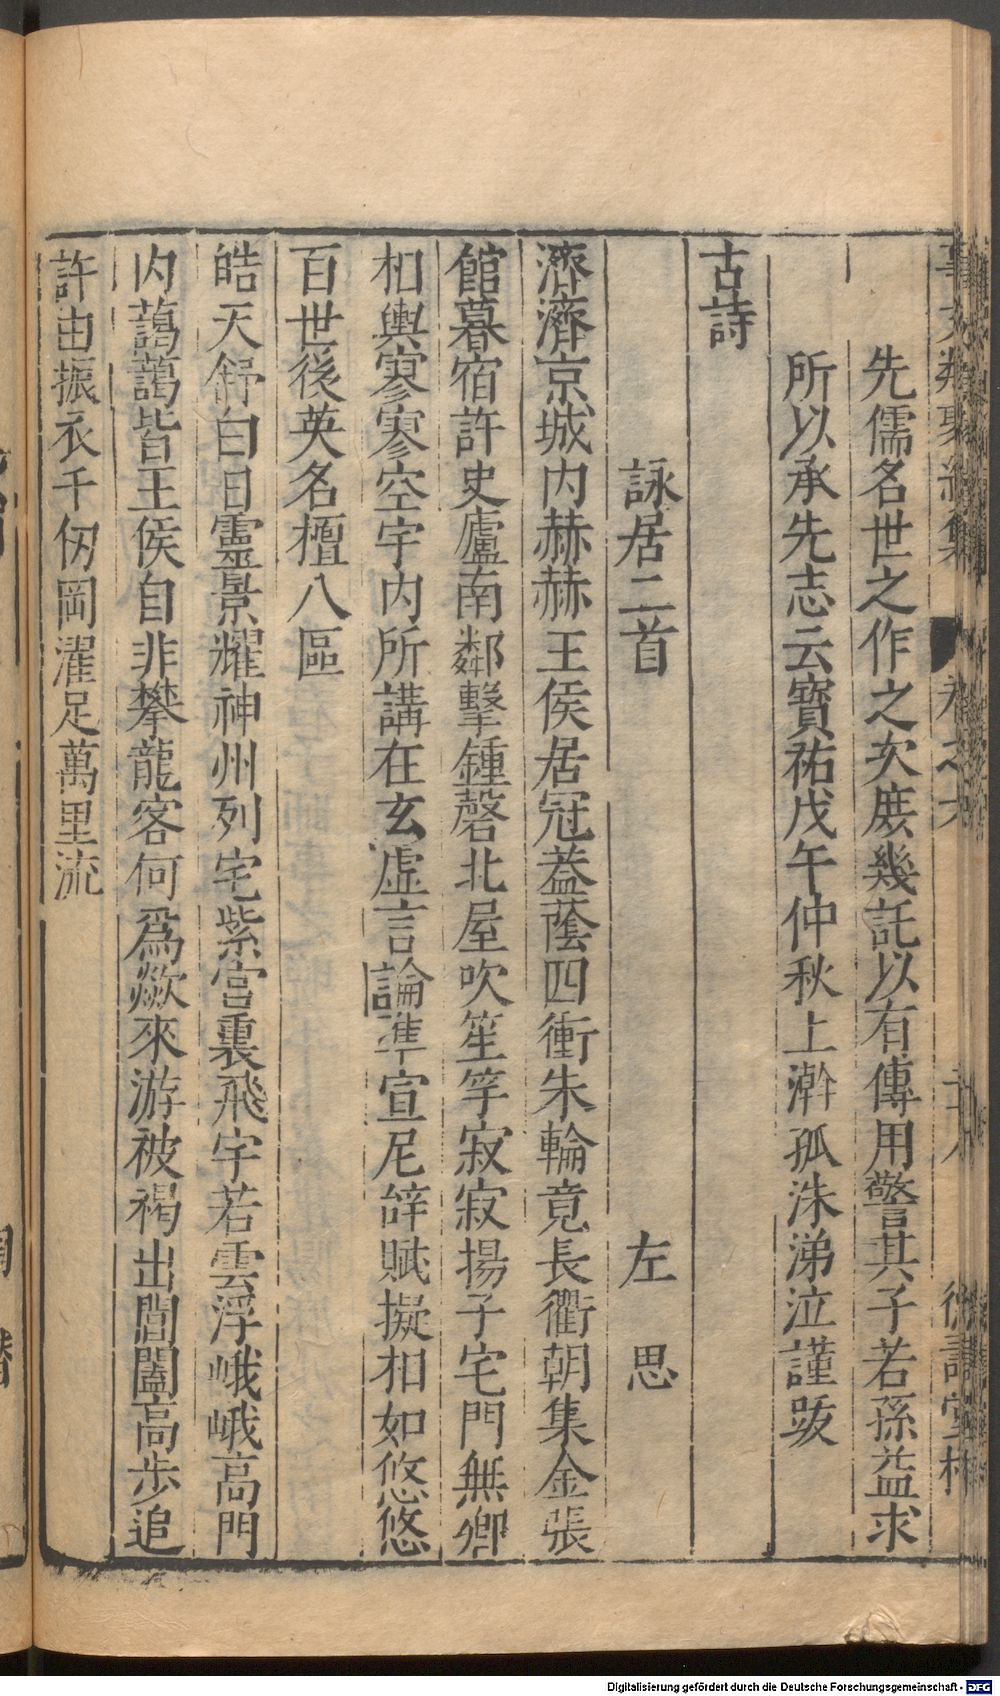 事文類聚續集 卷之六
先儒名世之作之次庶幾託以有傳用警其子若孫益求
所以承先志云寶祐戊午仲秋上澣孤洙涕泣謹跋
古詩
詠居二首 左思
濟濟京城内赫赫王侯居冠蓋蔭四衝朱輪竟長衢朝集金張
館暮宿許史廬南鄰擊鍾磬北屋吹笙竽寂寂揚子宅門無卿
相輿寥寥空宇内所講在玄虛言論準宣尼辞賦擬相如悠悠
百世後英名檀八區
皓天舒白日靈景耀神州列宅紫宫裏飛宇若雲浮峨峨高門
内藹藹皆王侯自非攀龍客何爲歘來游被褐出閶闔高步追
許由振衣千仞岡濯足萬里流
Digitalisierung gefördert durch die Deutsche Forschungsgemeinschaft - DFG